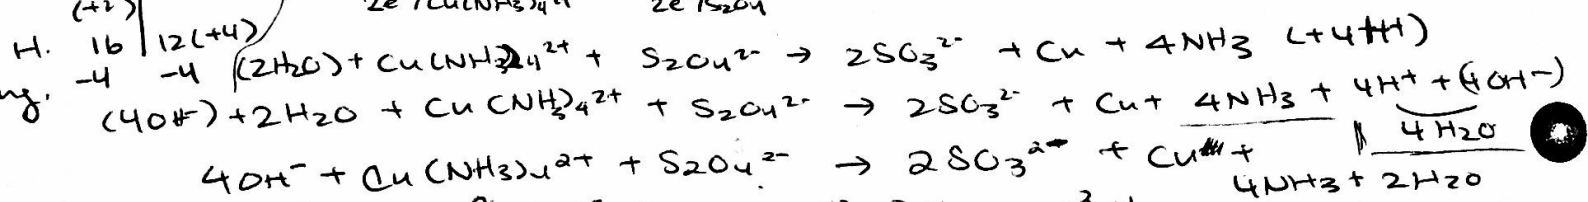 (+2) 2e⁻ / Cu(NH3)4 2e⁻ / S2O4
H. 16 | 12 (+4)
-4 -4 (2H2O) + Cu(NH3)4²⁺ + S2O4²⁻ → 2SO3²⁻ + Cu + 4NH3 (+4H)
ng. (4OH⁻) + 2H2O + Cu(NH3)4²⁺ + S2O4²⁻ → 2SO3²⁻ + Cu + 4NH3 + 4H⁺ + (4OH⁻)
4H2O
4OH⁻ + Cu(NH3)4²⁺ + S2O4²⁻ → 2SO3²⁻ + Cu +
4NH3 + 2H2O